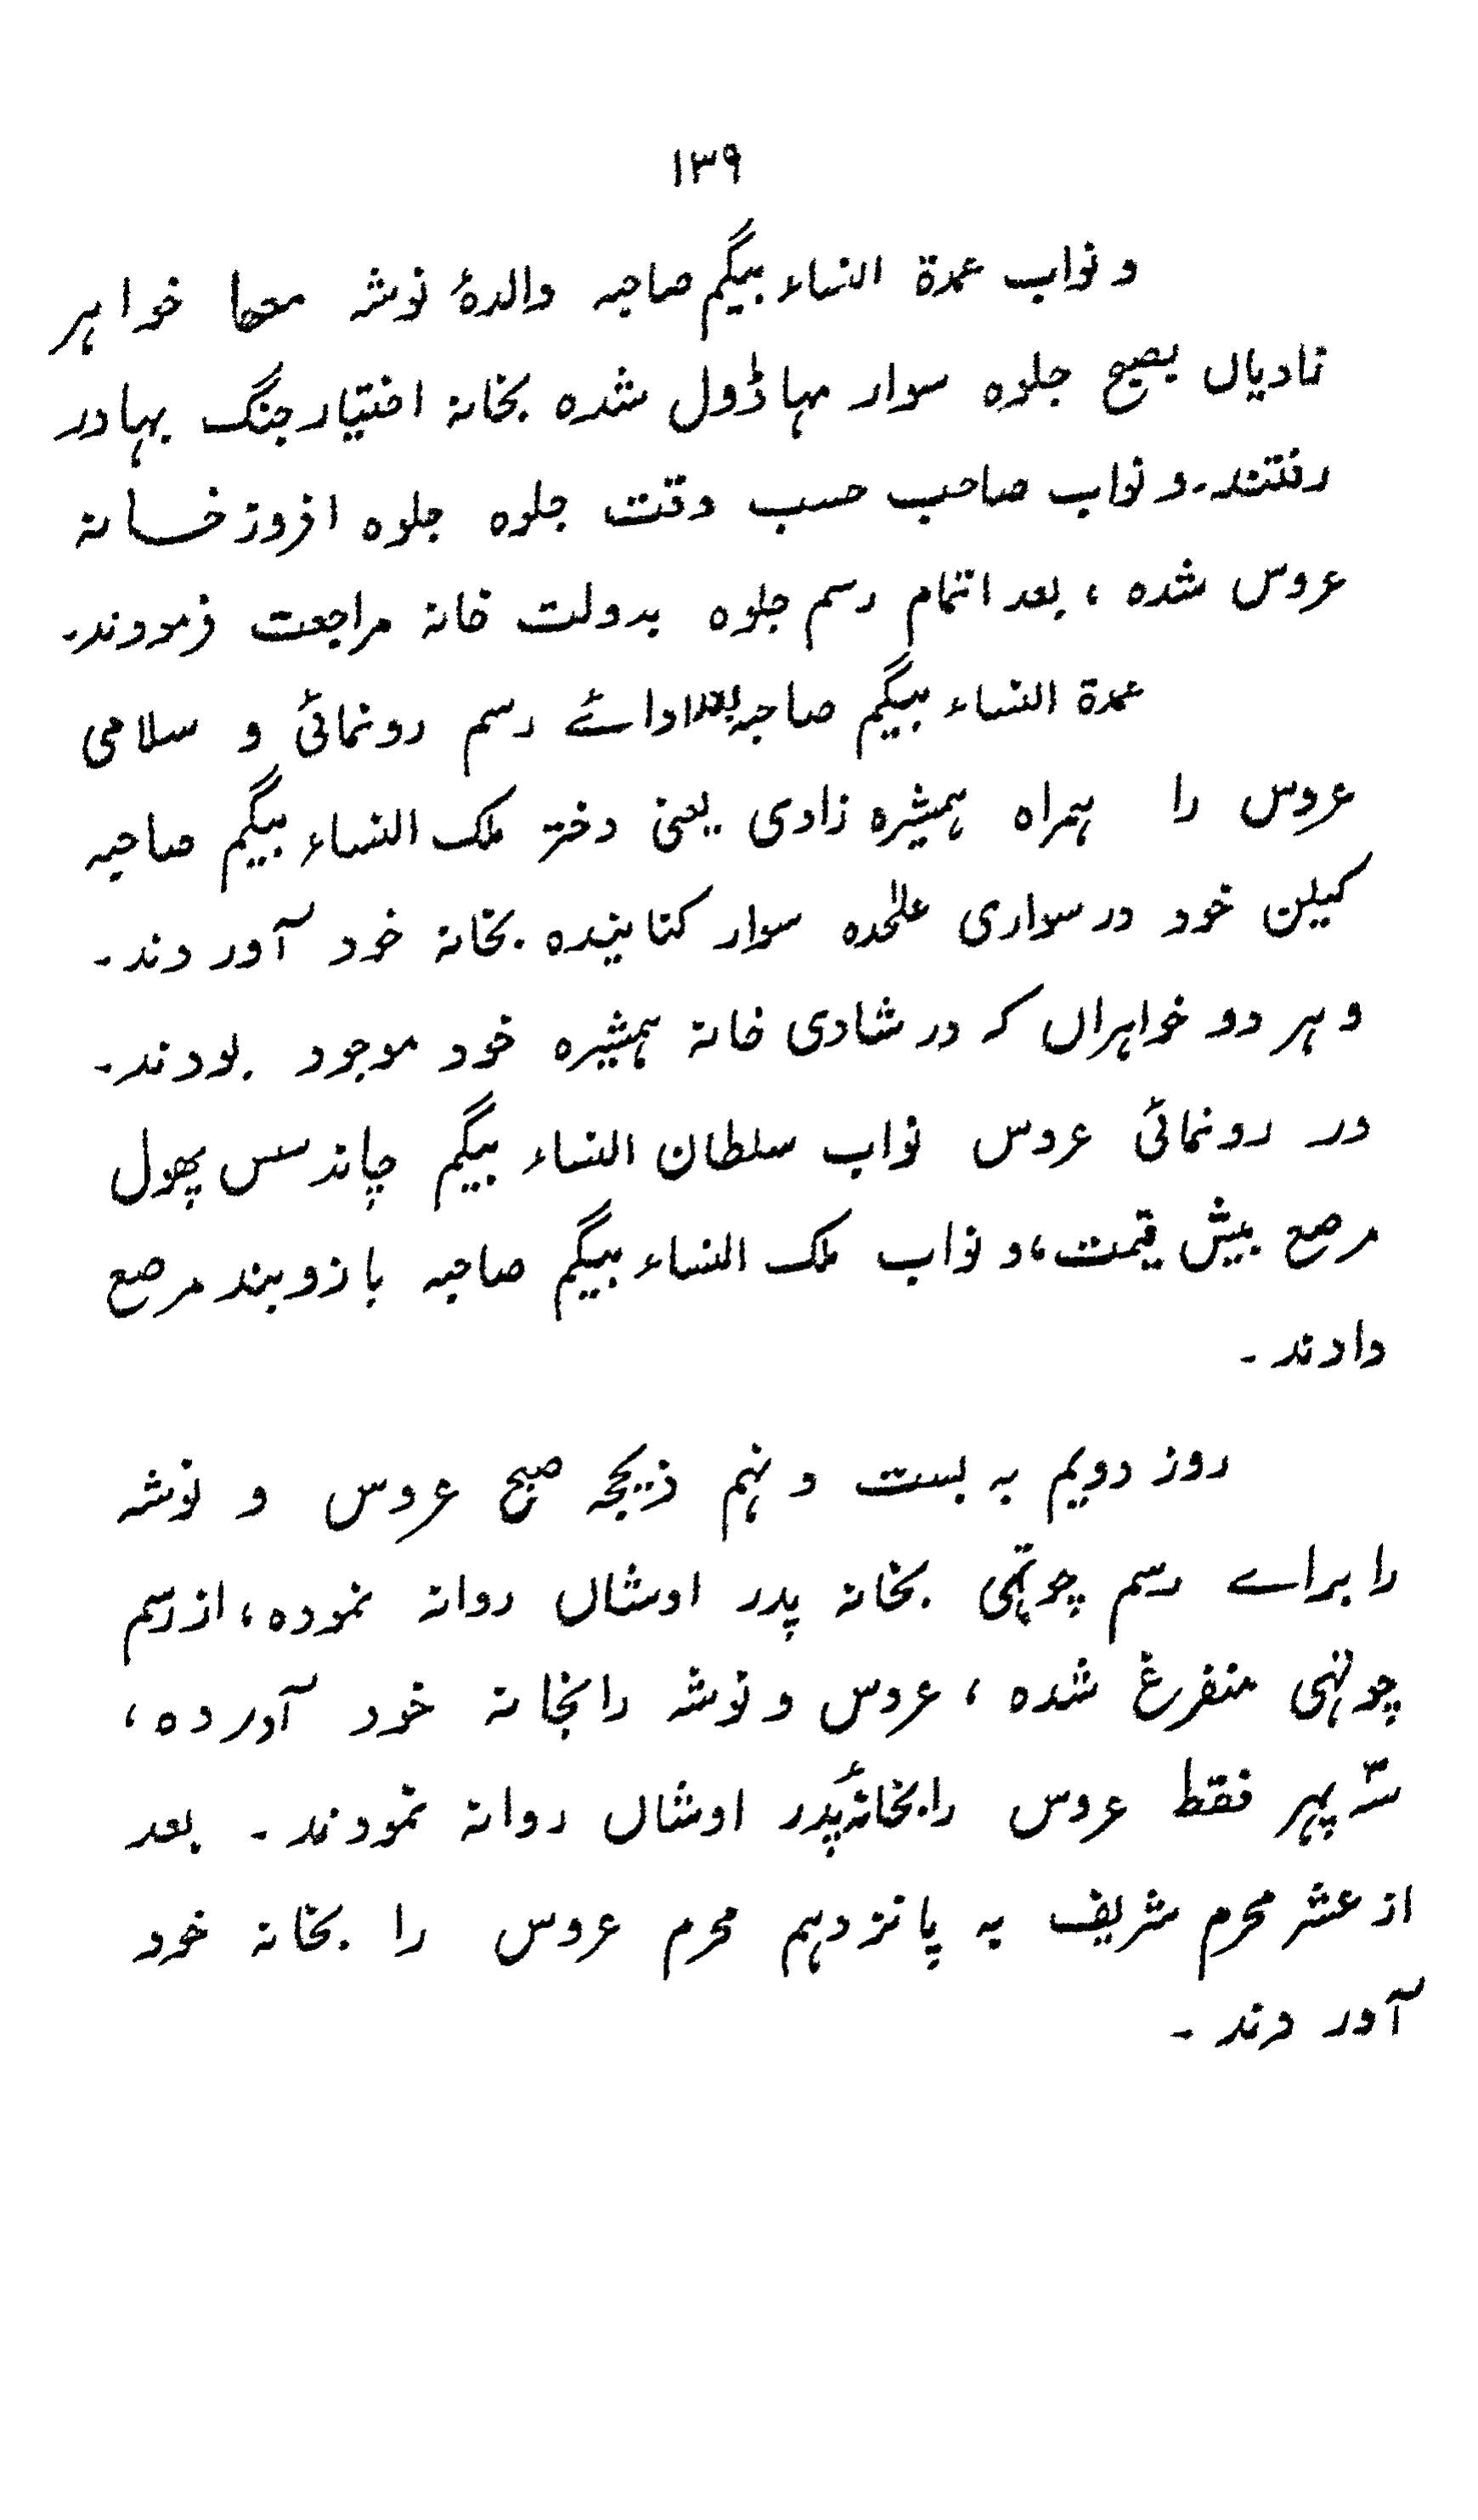 ۱۳۹
و نواب عمدة النساء بیگم صاحبہ والدۂ نوشہ معہا خواہر
نادیاں بصبح جلوہ سوار مہاڈول شدہ بخانہ اختیار جنگ بہادر
رفتند۔ و نواب صاحب حسب وقت جلوہ جلوہ افروز خانہ
عروس شدہ ، بعد اتمام رسم جلوہ بدولت خانہ مراجعت فرمودند۔
عمدة النساء بیگم صاحبہ بعد ادائے رسم رونمائی و سلامی
عروس را ہمراہ ہمشیرہ زادی یعنی دختر ملک النساء بیگم صاحبہ
کیلن خود در سواری علٰحدہ سوار کنانیدہ بخانہ خود آوردند۔
و ہر دو خواہراں کہ در شادی خانہ ہمشیرہ خود موجود بودند۔
در رونمائی عروس نواب سلطان النساء بیگم چاند سس پھول
مرصع بیش قیمت، و نواب ملک النساء بیگم صاحبہ بازوبند مرصع
دادند۔
روز دویم بہ بست و نہم ذیحجہ صبح عروس و نوشہ
را براے رسم چوتھی بخانہ پدر اوشاں روانہ نمودہ ، از رسم
چوتھی متفرغ شدہ ، عروس و نوشہ را بخانہ خود آوردہ ،
سہ پہر فقط عروس را بخانۂ پدر اوشاں روانہ نمودند۔ بعد
از عشر محرم شریف بہ پانزدہم محرم عروس را بخانہ خود
آوردند۔